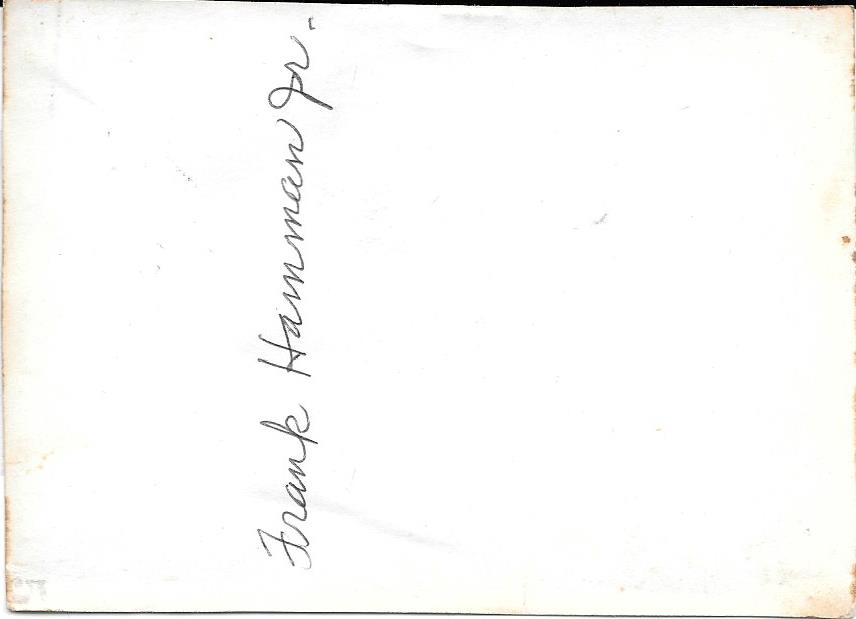 Frank Hamman Jr.